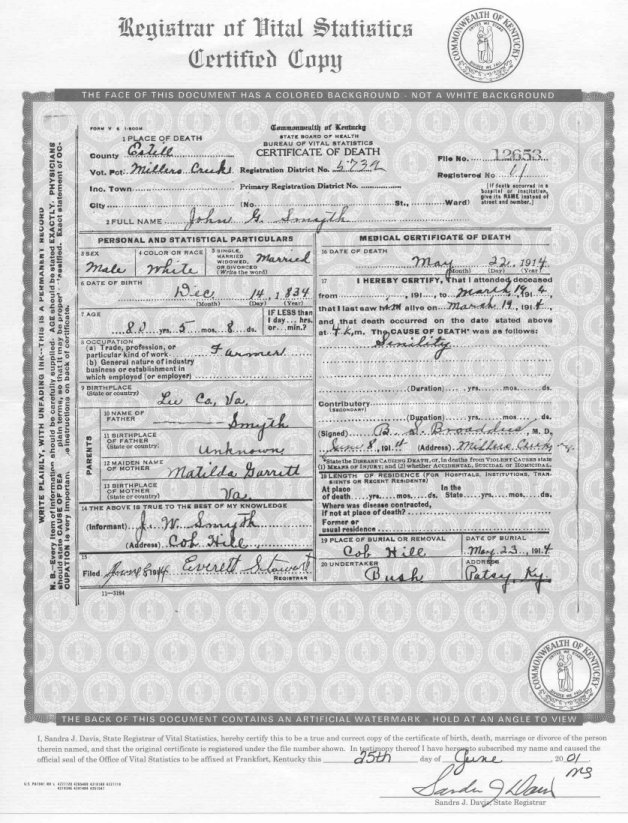 Registrar of Vital Statistics
Certified Copy
COMMONWEALTH OF KENTUCKY
THE FACE OF THIS DOCUMENT HAS A COLORED BACKGROUND - NOT A WHITE BACKGROUND
Commonwealth of Kentucky
STATE BOARD OF HEALTH
BUREAU OF VITAL STATISTICS
CERTIFICATE OF DEATH
1 PLACE OF DEATH
County Estill
Vot. Pct. Millers Creek Registration District No. 5734
File No. 12653
Registered No.
Inc. Town Primary Registration District No.
(If death occurred in a hospital or institution, give its NAME instead of street and number.)
City (No. St., Ward)
2 FULL NAME John G. Smyth
PERSONAL AND STATISTICAL PARTICULARS
3 SEX Male
4 COLOR OR RACE White
5 SINGLE, MARRIED, WIDOWED, OR DIVORCED (Write the word) Married
6 DATE OF BIRTH
Dec. 14, 1834
(Month) (Day) (Year)
7 AGE
80 yrs. 5 mos. 8 ds.
IF LESS than 1 day... hrs. or... min.?
8 OCCUPATION
(a) Trade, profession, or particular kind of work Farmer
(b) General nature of industry business or establishment in which employed (or employer)
9 BIRTHPLACE (State or country) Lee Co, Va,
PARENTS
10 NAME OF FATHER Smyth
11 BIRTHPLACE OF FATHER (State or country) Unknown
12 MAIDEN NAME OF MOTHER Matilda Garrett
13 BIRTHPLACE OF MOTHER (State or country) Va.
14 THE ABOVE IS TRUE TO THE BEST OF MY KNOWLEDGE
(Informant) W. Smyth
(Address) Cob Hill
15
Filed 1914 Everett Stewart
REGISTRAR
11-3184
MEDICAL CERTIFICATE OF DEATH
16 DATE OF DEATH
May 22, 1914
(Month) (Day) (Year)
17 I HEREBY CERTIFY, That I attended deceased
from , 191 , to March 19, 1914,
that I last saw him alive on March 19, 1914,
and that death occurred on the date stated above
at m. The CAUSE OF DEATH* was as follows:
Senility
(Duration) yrs. mos. ds.
Contributory
(SECONDARY)
(Duration) yrs. mos. ds.
(Signed) B. S. Broaddus, M. D.,
8, 1914 (Address) Millers Creek Ky
*State the DISEASE CAUSING DEATH, or, in deaths from VIOLENT CAUSES state (1) MEANS OF INJURY; and (2) whether ACCIDENTAL, SUICIDAL or HOMICIDAL.
18 LENGTH OF RESIDENCE (FOR HOSPITALS, INSTITUTIONS, TRANSIENTS OR RECENT RESIDENTS)
At place of death yrs. mos. ds. In the State yrs. mos. ds.
Where was disease contracted, if not at place of death?
Former or usual residence
19 PLACE OF BURIAL OR REMOVAL Cob Hill
DATE OF BURIAL May 23, 1914
20 UNDERTAKER Bush
ADDRESS Patsy, Ky.
WRITE PLAINLY, WITH UNFADING INK--THIS IS A PERMANENT RECORD
N. B.--Every item of information should be carefully supplied. AGE should be stated EXACTLY. PHYSICIANS
should state CAUSE OF DEATH in plain terms, so that it may be properly classified. Exact statement of OC-
CUPATION is very important. See instructions on back of certificate.
THE BACK OF THIS DOCUMENT CONTAINS AN ARTIFICIAL WATERMARK - HOLD AT AN ANGLE TO VIEW
I, Sandra J. Davis, State Registrar of Vital Statistics, hereby certify this to be a true and correct copy of the certificate of birth, death, marriage or divorce of the person
therein named, and that the original certificate is registered under the file number shown. In testimony thereof I have hereunto subscribed my name and caused the
official seal of the Office of Vital Statistics to be affixed at Frankfort, Kentucky this 25th day of June, 2001
Sandra J Davis
Sandra J. Davis, State Registrar